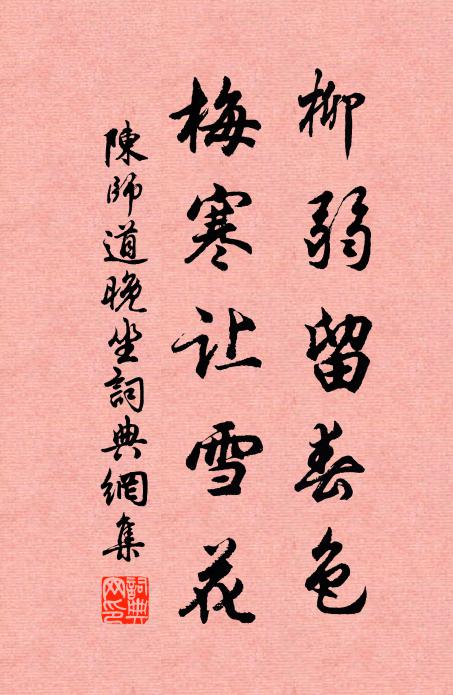 柳弱留春色
梅寒让雪花
陳師道晚坐詞典網集
詞典網印